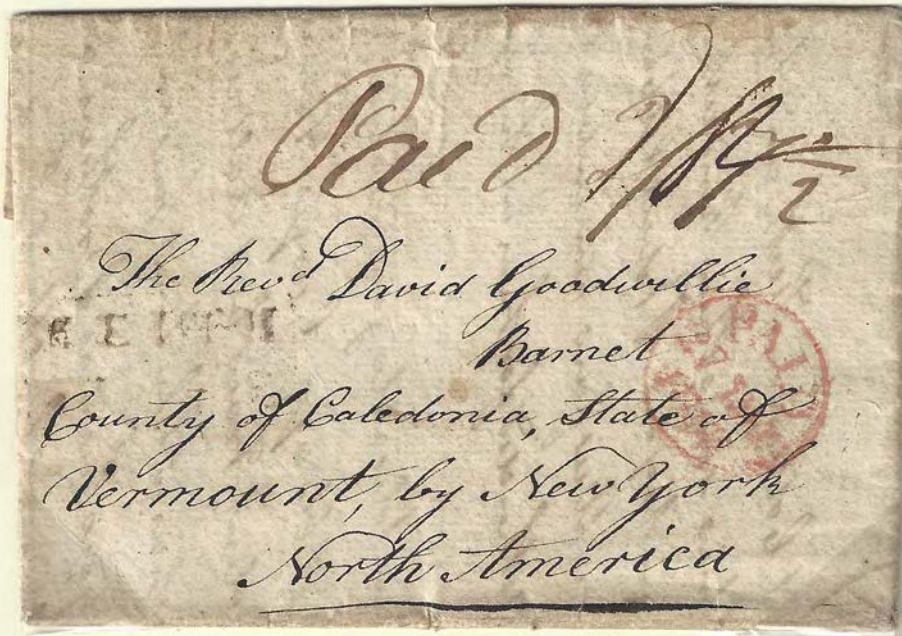 Paid
The Revd David Goodwillie
Barnet
PAID
County of Caledonia, State of
Vermount, by New York
North America